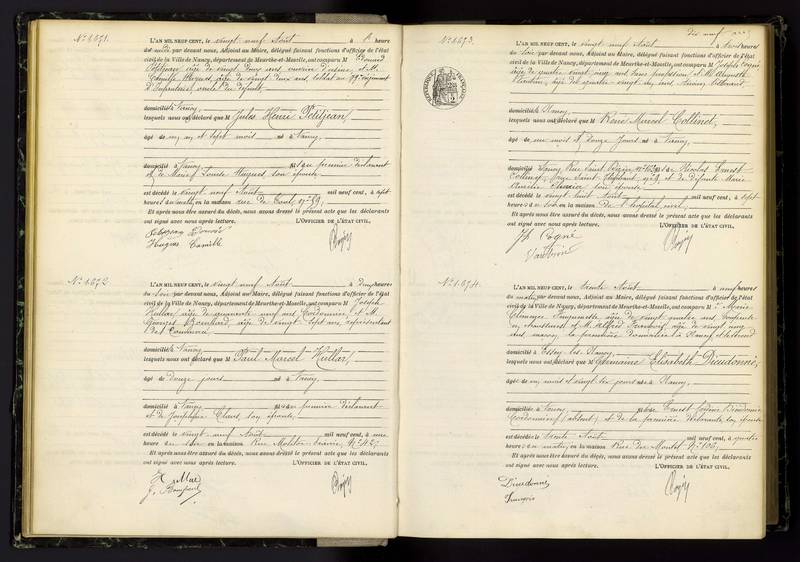 N° 1.671.
L'AN MIL NEUF CENT, le vingt neuf Août à heure
du par devant nous, Adjoint au Maire, délégué faisant fonctions d'officier de l'état
civil de la Ville de Nancy, département de Meurthe-et-Moselle, ont comparu M
âgé de vingt deux ans, ouvrier d'usine et M.
Camille Hugues, âgé de vingt deux ans soldat au régiment
d'Infanterie, oncle du défunt
domicilié à Nancy
lesquels nous ont déclaré que Jules Henri Petitjean,
âgé de un an et sept mois né à Nancy
domicilié à Nancy fils du premier déclarant
et de Marie Louise Hugues, son épouse
est décédé le vingt neuf Août mil neuf cent, à sept
heures du matin, en la maison rue de Toul, n° 59,
Et après nous être assuré du décès, nous avons dressé le présent acte que les déclarants
ont signé avec nous après lecture. L'OFFICIER DE L'ÉTAT CIVIL,
Hugues Camille
N° 1.672
L'AN MIL NEUF CENT, le vingt neuf Août à deux heures
du soir par devant nous, Adjoint au Maire, délégué faisant fonctions d'officier de l'état
civil de la Ville de Nancy, département de Meurthe-et-Moselle, ont comparu M Joseph
âgé de quarante neuf ans Cordonnier, et M.
Georges âgé de vingt sept ans, représentant
de Commerce
domiciliés à Nancy
lesquels nous ont déclaré que M Paul Marcel
âgé de douze jours né à Nancy,
domicilié à Nancy fils du premier déclarant
et de Joséphine Claus, son épouse,
est décédé le vingt neuf Août mil neuf cent, à une
heure du soir en la maison Rue Molitor N° 45,
Et après nous être assuré du décès, nous avons dressé le présent acte que les déclarants
ont signé avec nous après lecture. L'OFFICIER DE L'ÉTAT CIVIL,
N° 1.673.
L'AN MIL NEUF CENT, le vingt neuf Août à trois heures
du soir par devant nous, Adjoint au Maire, délégué faisant fonctions d'officier de l'état
civil de la Ville de Nancy, département de Meurthe-et-Moselle, ont comparu M Joseph Cogné
âgé de quatre vingt cinq ans sans profession et M. Auguste
domiciliés à Nancy
lesquels nous ont déclaré que M René Marcel Collinet,
âgé de un mois et douze jours né à Nancy,
domicilié à Nancy, Rue Saint Dizier fils de Nicolas Ernest
Collinet, et de défunte Marie
son épouse
est décédé le vingt huit Août mil neuf cent, à sept
heures du soir en la maison de l'hôpital civil,
Et après nous être assuré du décès, nous avons dressé le présent acte que les déclarants
ont signé avec nous après lecture. L'OFFICIER DE L'ÉTAT CIVIL,
Jh Cogné
N° 1.674.
L'AN MIL NEUF CENT, le trente Août à neuf heures
du matin par devant nous, Adjoint au Maire, délégué faisant fonctions d'officier de l'état
civil de la Ville de Nancy, département de Meurthe-et-Moselle, ont comparu M Marie
âgée de vingt quatre ans
et M. Alfred âgé de vingt cinq
ans, la première domiciliée à Nancy et le second
domicilié à Essey-lès-Nancy
lesquels nous ont déclaré que M Germaine Elisabeth Dieudonné,
âgé de un mois et vingt six jours née à Nancy
domicilié à Nancy fille de Ernest Eugène Dieudonné
Cordonnier (absent) et de la première déclarante son épouse
est décédée le trente Août mil neuf cent, à quatre
heures du matin, en la maison Rue de Montet N° 106,
Et après nous être assuré du décès, nous avons dressé le présent acte que les déclarants
ont signé avec nous après lecture. L'OFFICIER DE L'ÉTAT CIVIL,
Dieudonné
François